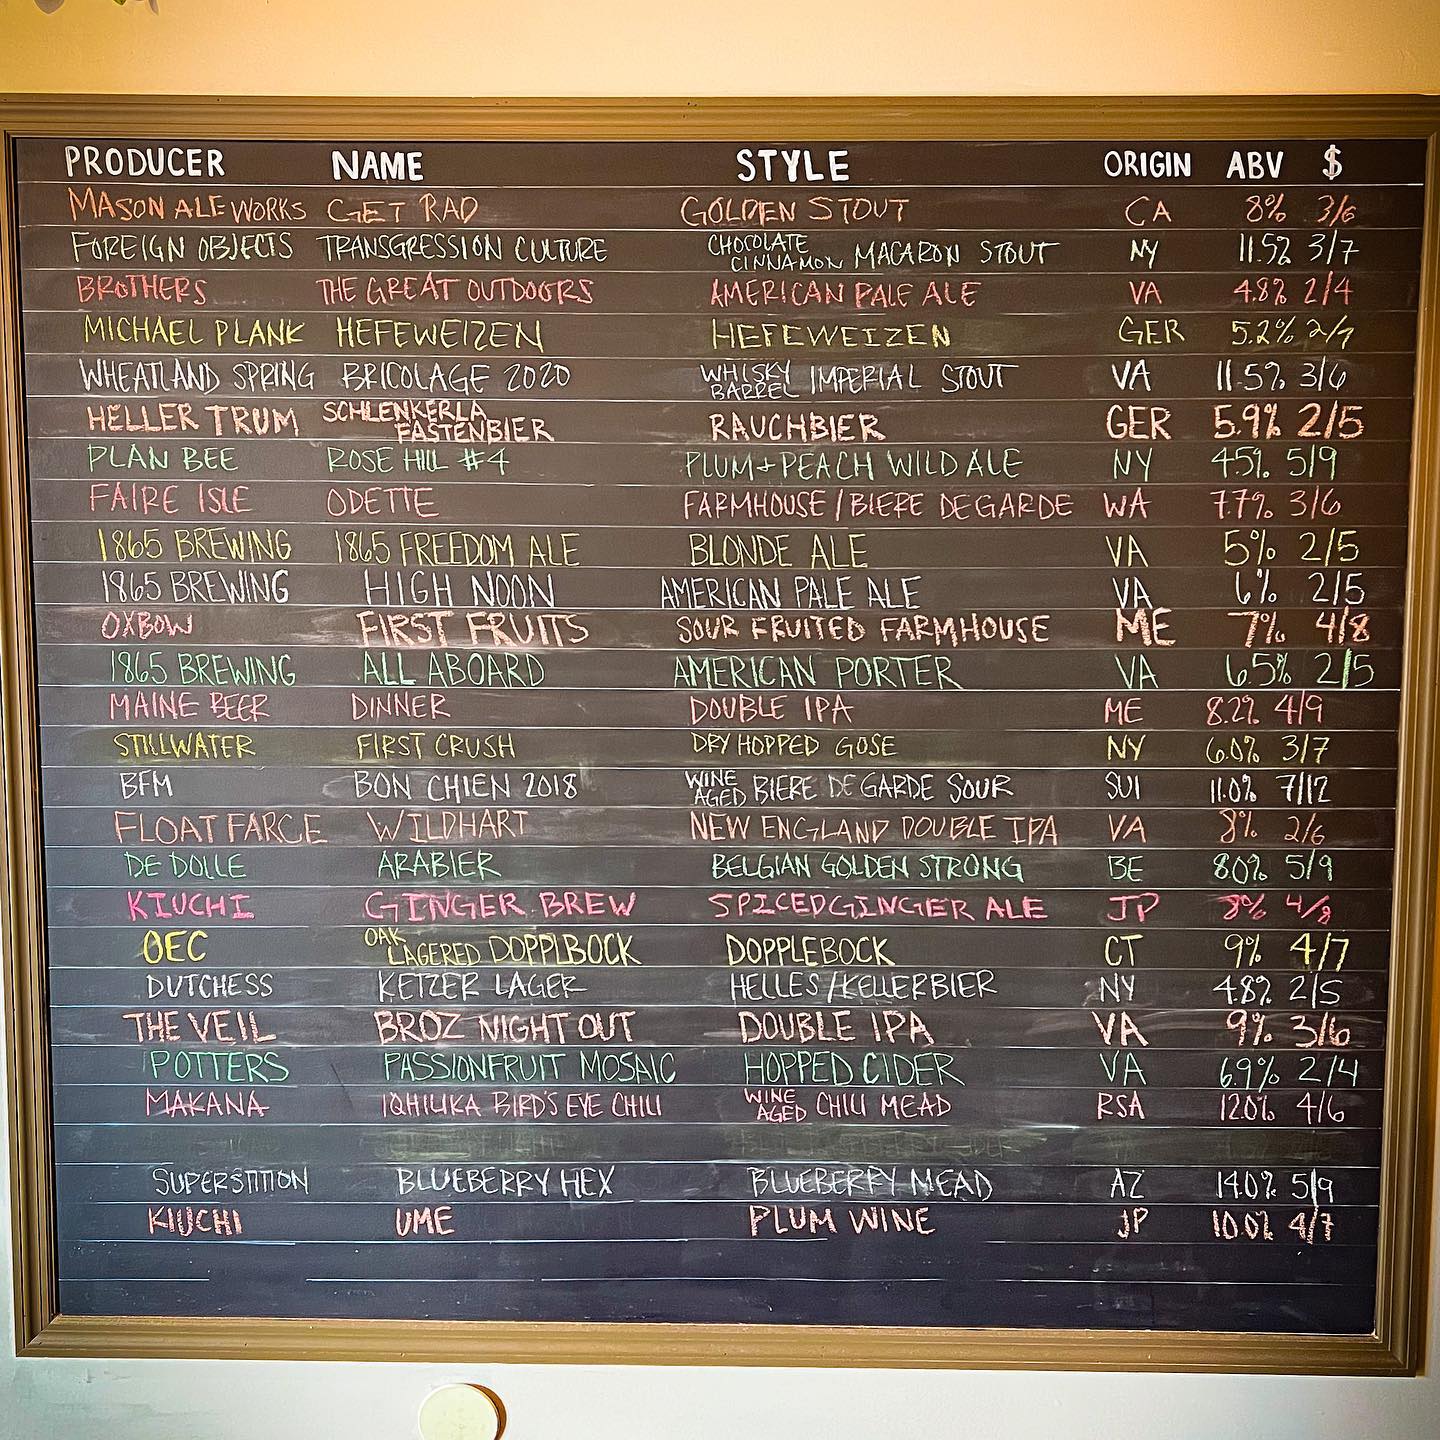 PRODUCER NAME STYLE ORIGIN ABV $
MASON ALE WORKS GET RAD GOLDEN STOUT CA 8% 3/6
FOREIGN OBJECTS TRANSGRESSION CULTURE CHOCOLATE CINNAMON MACARON STOUT NY 11.5% 3/7
BROTHERS THE GREAT OUTDOORS AMERICAN PALE ALE VA 4.8% 2/4
MICHAEL PLANK HEFEWEIZEN HEFEWEIZEN GER 5.2% 2/7
WHEATLAND SPRING BRICOLAGE 2020 WHISKY BARREL IMPERIAL STOUT VA 11.5% 3/6
HELLER TRUM SCHLENKERLA FASTENBIER RAUCHBIER GER 5.9% 2/5
PLAN BEE ROSE HILL #4 PLUM + PEACH WILD ALE NY 4.5% 5/9
FAIRE ISLE ODETTE FARMHOUSE/BIERE DE GARDE WA 7.7% 3/6
1865 BREWING 1865 FREEDOM ALE BLONDE ALE VA 5% 2/5
1865 BREWING HIGH NOON AMERICAN PALE ALE VA 6% 2/5
OXBOW FIRST FRUITS SOUR FRUITED FARMHOUSE ME 7% 4/8
1865 BREWING ALL ABOARD AMERICAN PORTER VA 6.5% 2/5
MAINE BEER DINNER DOUBLE IPA ME 8.2% 4/9
STILLWATER FIRST CRUSH DRY HOPPED GOSE NY 6.0% 3/7
BFM BON CHIEN 2018 WINE AGED BIERE DE GARDE SOUR SUI 11.0% 7/12
FLOAT FARCE WILDHART NEW ENGLAND DOUBLE IPA VA 8% 2/6
DE DOLLE ARABIER BELGIAN GOLDEN STRONG BE 8.0% 5/9
KIUCHI GINGER BREW SPICED GINGER ALE JP 8% 4/8
OEC OAK LAGERED DOPPLBOCK DOPPLEBOCK CT 9% 4/7
DUTCHESS KETZER LAGER HELLES/KELLERBIER NY 4.8% 2/5
THE VEIL BROZ NIGHT OUT DOUBLE IPA VA 9% 3/6
POTTERS PASSIONFRUIT MOSAIC HOPPED CIDER VA 6.9% 2/4
MAKANA IQHILIKA BIRD'S EYE CHILI WINE AGED CHILI MEAD RSA 12.0% 4/6
SUPERSTITION BLUEBERRY HEX BLUEBERRY MEAD AZ 14.0% 5/9
KIUCHI UME PLUM WINE JP 10.0% 4/7